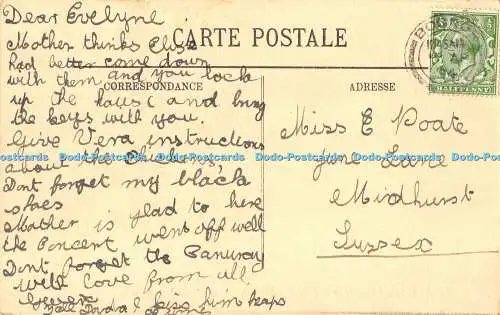 Dear Evelyne
Mother thinks Elsie
had better come down
with them and you lock
up the haus and bring
the keys with you.
Give Vera instructions
about the Chickens.
Dont forget my black
shoes
Mother is glad to here
the Concert went off well
Dont forget the
with love from all
Tell kiss him heaps
CARTE POSTALE
CORRESPONDANCE
ADRESSE
Miss E Poate
June Lane
Midhurst
Sussex
HALFPENNY
Dodo-Postcards Dodo-Postcards Dodo-Postcards Dodo-Postcards Dodo-Postcards Dodo-Postcards